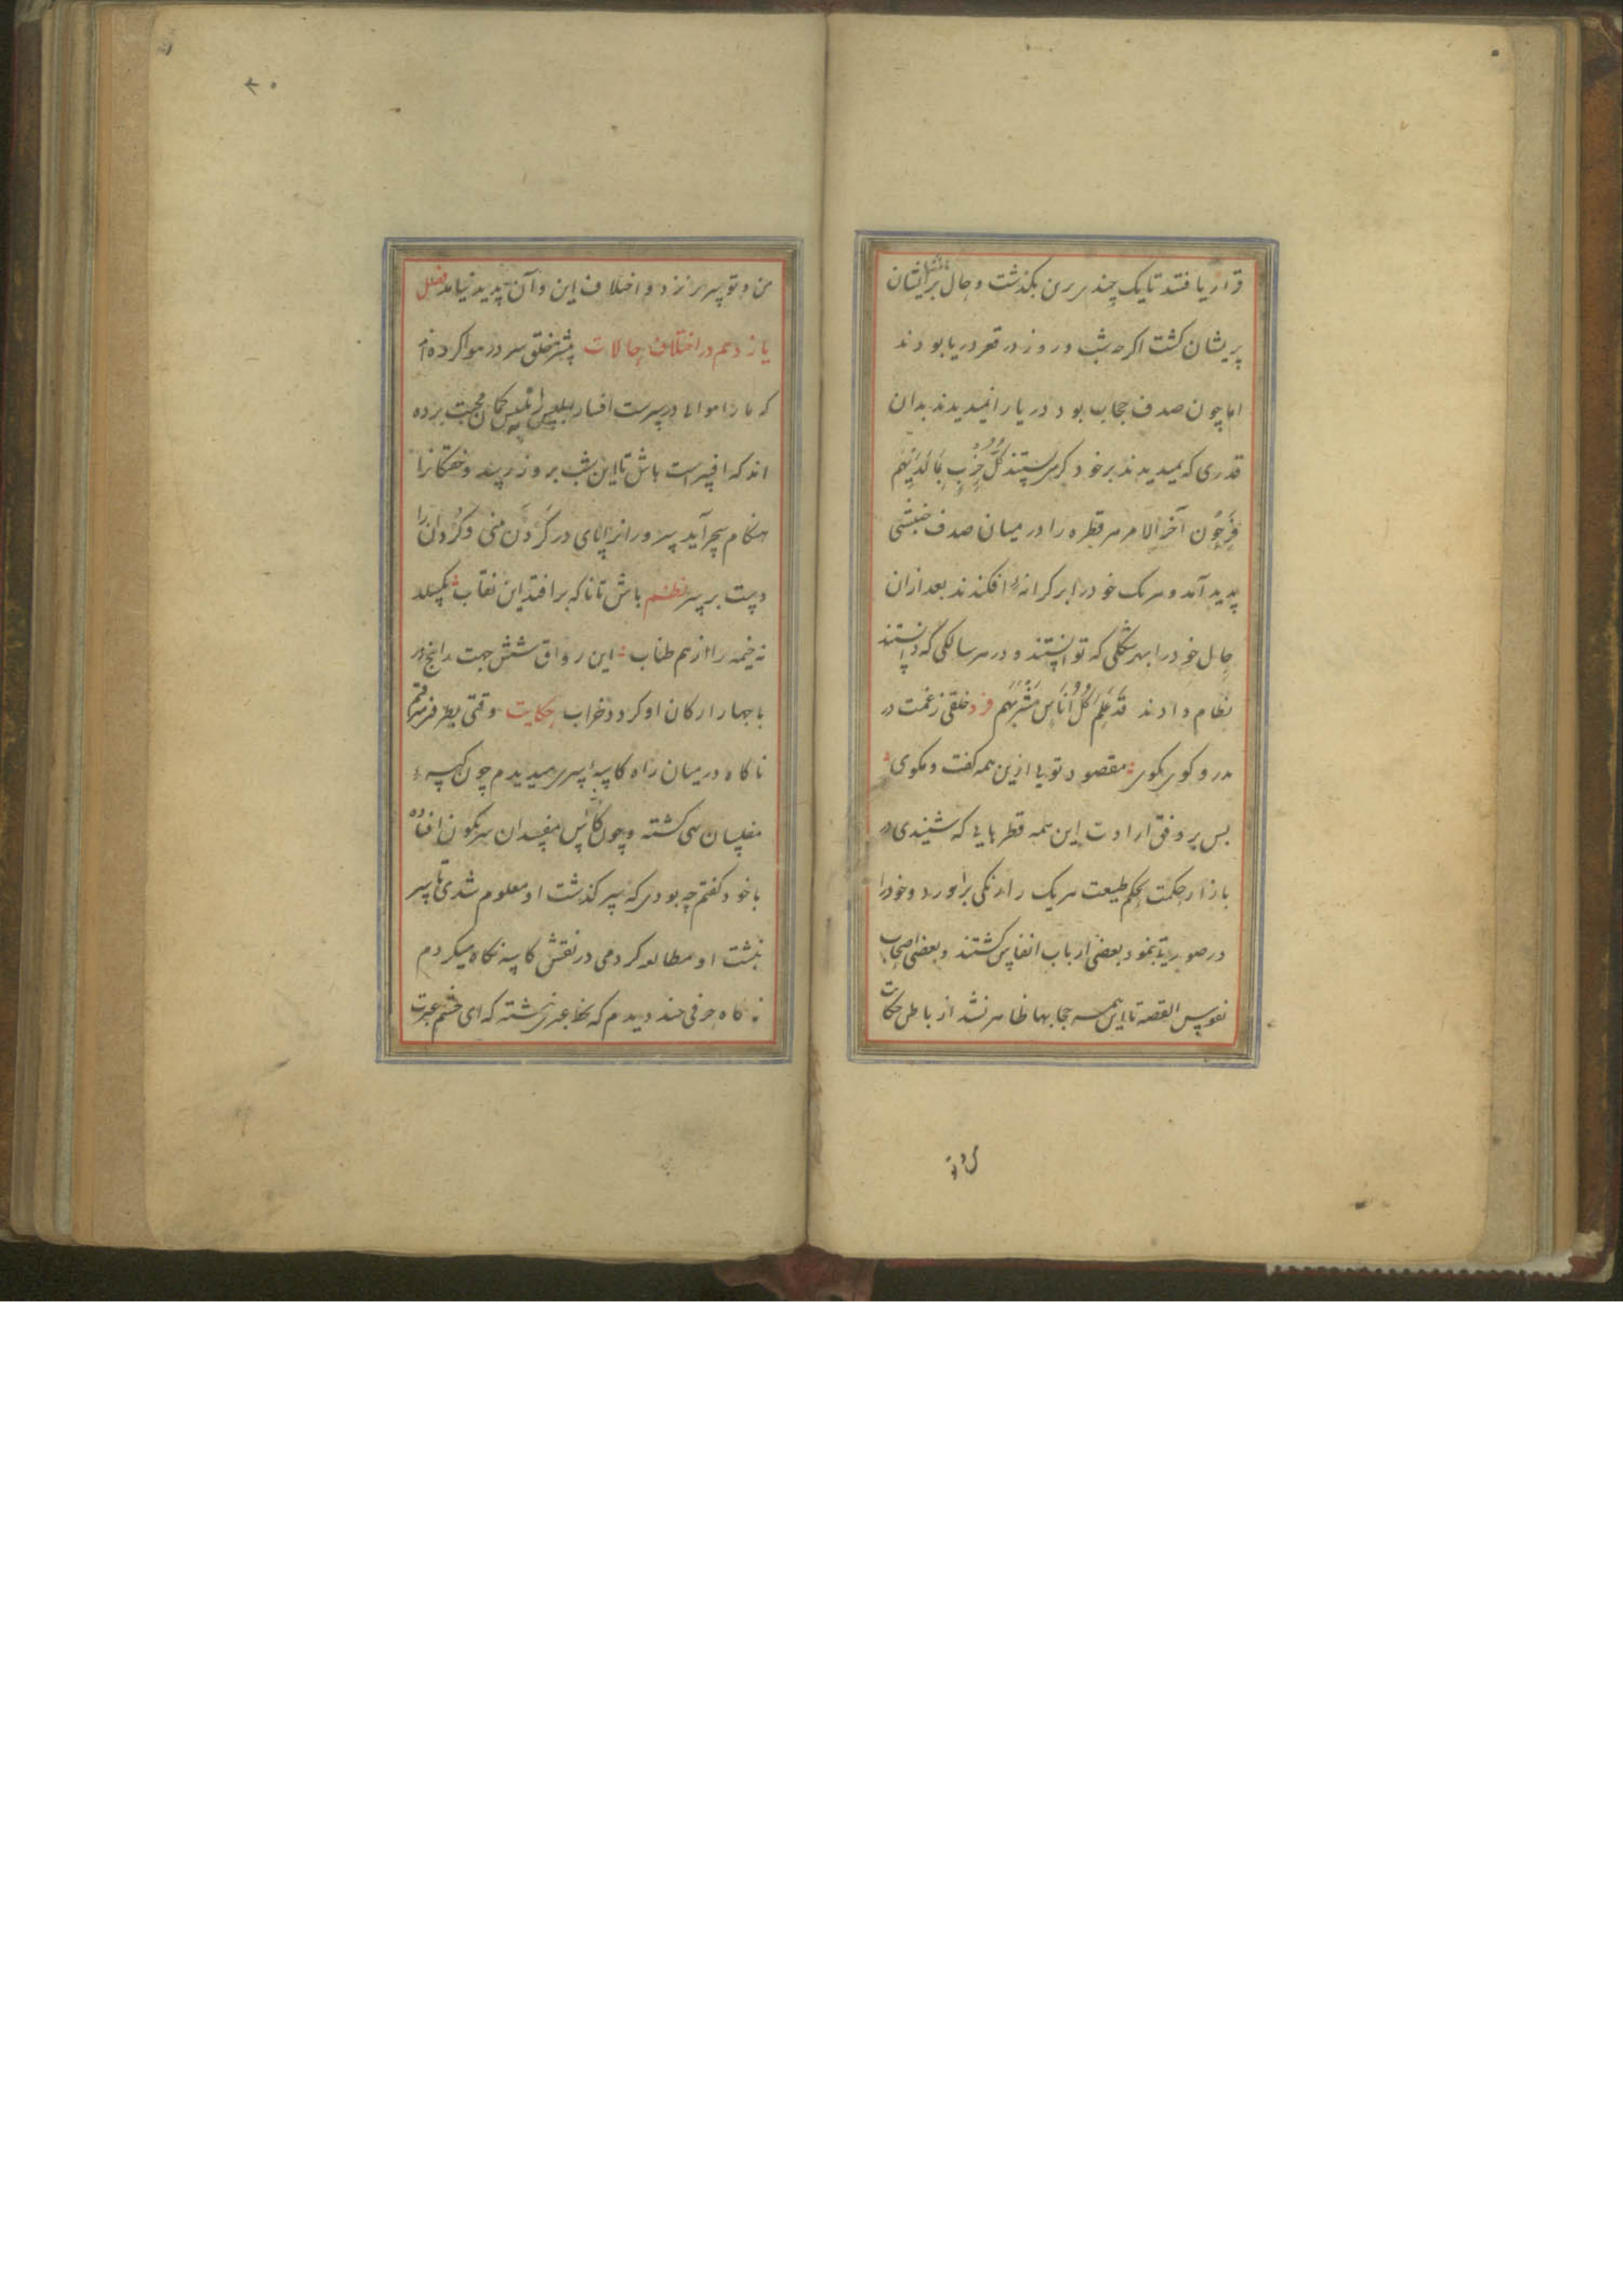 قرار یافتند تا یک چند برین بگذشت و حال بر ایشان
پریشان گشت اگرچه شب و روز در قعر دریا بودند
اما چون صدف حجاب بود دریا را نمیدیدند بدان
قدری که میدیدند بر خود گریستند كُلُّ حِزْبٍ بِمَا لَدَيْهِمْ
فَرِحُون آخر الامر هر قطره را در میان صدف جنبشی
پدید آمد و هر یک خود را بر کرانهٔ افکندند بعد ازان
حال خود را بهر شکلی که توانستند و در هر سالکی که دانستند
نظام دادند قَدْ عَلِمَ كُلُّ أُنَاسٍ مَشْرَبَهُمْ فرد خلقی ز غمت در
بدر و کوی بکوی مقصود تویی ازین همه گفت و مگوی
بس بر وفق ارادت این همه قطرهایی که شنیدی در
بازار حکمت بحکم طبیعت هر یک رنگی برآورد و خود را
در صورتی بنمود بعضی ارباب انفاس گشتند و بعضی اصحاب
نفوس القصه تا این همه حجابها ظاهر نشد از باطن حکایت
من و تو سر بر نزد و اختلاف این و آن پدید نیامد فصل
یازدهم در اختلاف حالات بیشتر خلق سر در هوا کرده‌اند
که ما را هوای در سرست افسار ابلیس را بتلبیس گمان محبت برده
اند که افسرست باش تا این شب بروز رسد و خفتگانرا
هنگام سحر آید سر ور از پای در گَردن بینی و گُردان را
دست بر سر نظم باش تا ناگه برافتد این نقاب بگسلد
نه خیمه را از هم طناب این رواق شش جهت را پنج در
با چهار ارکان او گردد خراب حکایت وقتی بطرفی میرفتم
ناگاه در میان راه کاسهٔ سر میدیدم چون کیسهٔ
مفلسان تهی گشته و چون کأس مفسدان سرنگون افتاده
با خود گفتم چه بودی که سرگذشت او معلوم شدی تا سر
نبشت او مطالعه کردمی در نقش کاسه نگاه میکردم
ناگاه حرفی چند دیدم که بخط عبرت نبشته که ای چشم عبرت